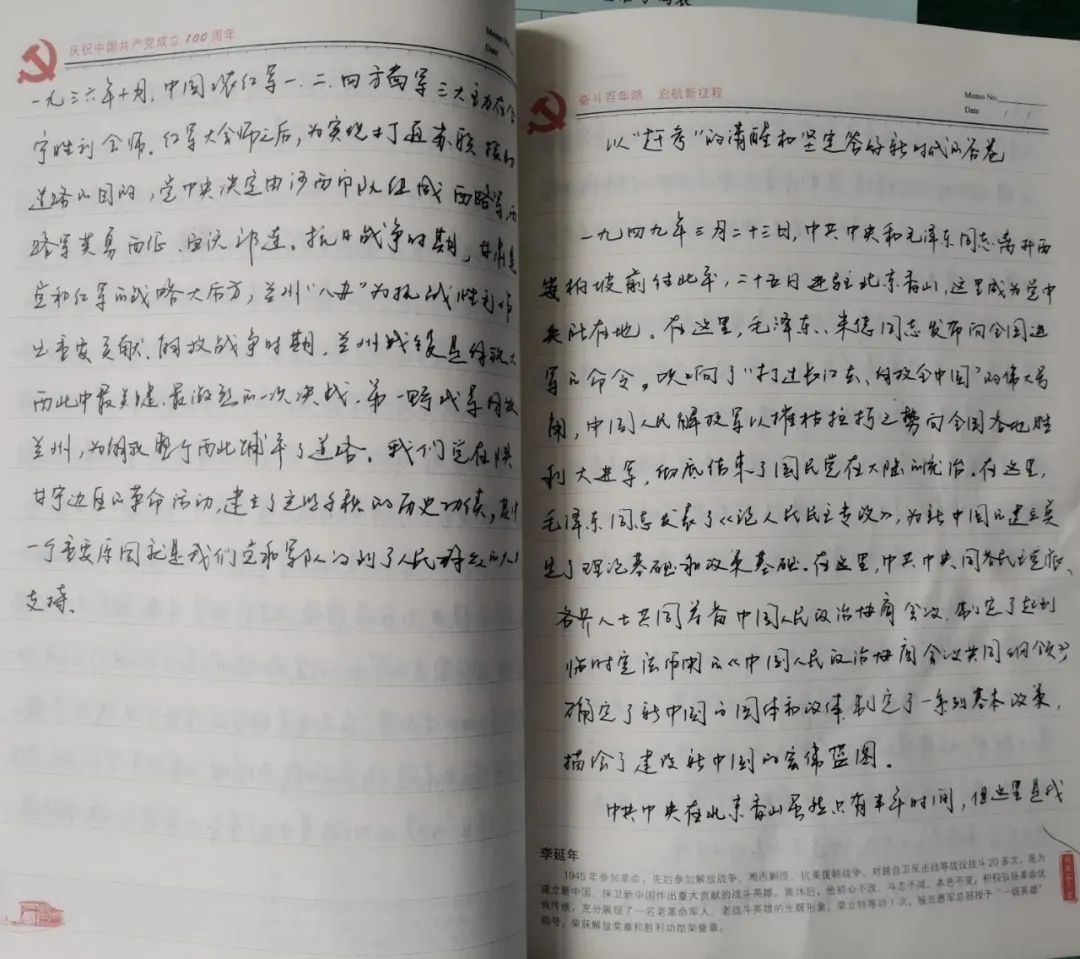 庆祝中国共产党成立100周年
Memo No.
Date
一九三六年十月,中国工农红军一、二、四方面军三大主力在会
宁胜利会师。红军大会师之后,为实现打通苏联援助
道路的目的,党中央决定由河西部队组成西路军,西
路军英勇西征、血沃祁连。抗日战争时期,甘肃是
党和红军的战略大后方,兰州“八办”为抗战胜利作
出重要贡献。解放战争时期,兰州战役是解放大
西北中最关键、最激烈的一次决战。第一野战军解放
兰州,为解放整个西北铺平了道路。我们党在陕
甘宁边区的革命活动,建立了的历史功绩,其中
一个重要原因就是我们党和军队得到了人民的
支持。
奋斗百年路 启航新征程
Memo No.
Date / /
以“赶考”的清醒和坚定答好新时代的答卷
一九四九年三月二十三日,中共中央和毛泽东同志离开西
柏坡前往北平,二十五日进驻北京香山,这里成为党中
央所在地。在这里,毛泽东、朱德同志发布向全国进
军的命令,吹响了“打过长江去、解放全中国”的伟大号
角,中国人民解放军以摧枯拉朽之势向全国各地胜
利大进军,彻底结束了国民党在大陆的统治。在这里,
毛泽东同志发表了《论人民民主专政》,为新中国的建立奠
定了理论基础和政策基础。在这里,中共中央同各民主党派、
各界人士共同筹备中国人民政治协商会议,制定了起到
临时宪法作用的《中国人民政治协商会议共同纲领》
确定了新中国的国体和政体,制定了一系列基本政策,
描绘了建设新中国的宏伟蓝图。
中共中央在北京香山虽然只有半年时间,但这里是我
李延年
1945年参加革命,先后参加解放战争、湘西剿匪、抗美援朝战争、对越自卫反击战等战役战斗20多次,是为
建立新中国、保卫新中国作出重大贡献的战斗英雄。离休后,他初心不改、斗志不减、本色不变,积极弘扬革命优
良传统,充分展现了一名老革命军人、老战斗英雄的光辉形象。荣立特等功1次,被志愿军总部授予“一级英雄”
称号,荣获解放奖章和胜利功勋荣誉章。